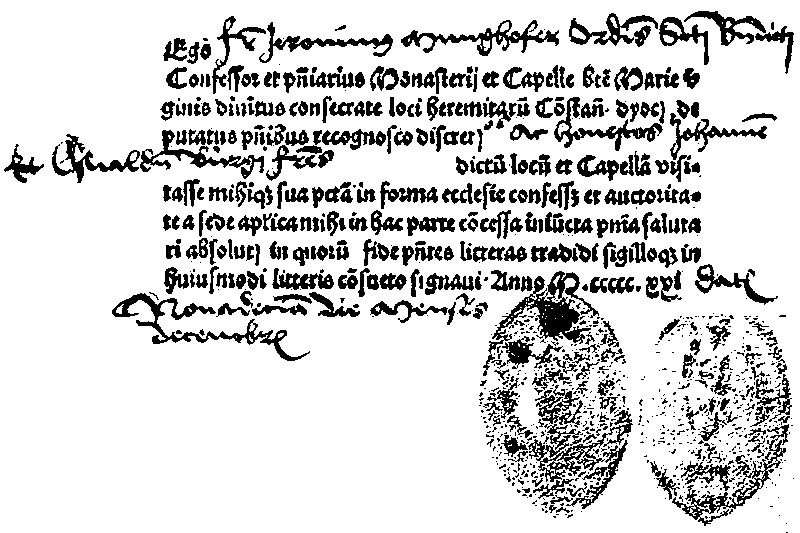 Ego fr̄ Jeronimus Munghofer Ordīs Scti Bn̄dicti
Confessor et pn̄iarius Monasterij et Capelle btē Marie v
ginis divinitus consecrate loci heremitarū Cōstan̄. dyocꝫ de
putatus pn̄ibus recognosco discret) ac honestos Johannē
Et dictū locū et Capellā visi-
tasse mihiqꝫ sua pctā in forma ecclesie confessꝫ et auctorita-
te a sede aplica mihi in hac parte cōcessa iniūcta pn̄ia saluta
ri absolutꝫ in quorū fide pn̄tes litteras tradidi sigilloqꝫ in
huiusmodi litteris cōsueto signaui. Anno M.ccccc.xxi dat)
die Mensis
decembꝛ